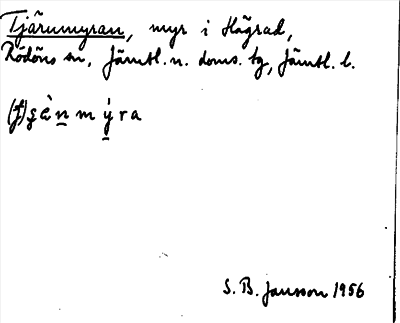 Tjärumyran, myr i Högrad,
Rödöns sn, Jämtl. n. doms. tg, Jämtl. l.
S. B. Jansson 1956